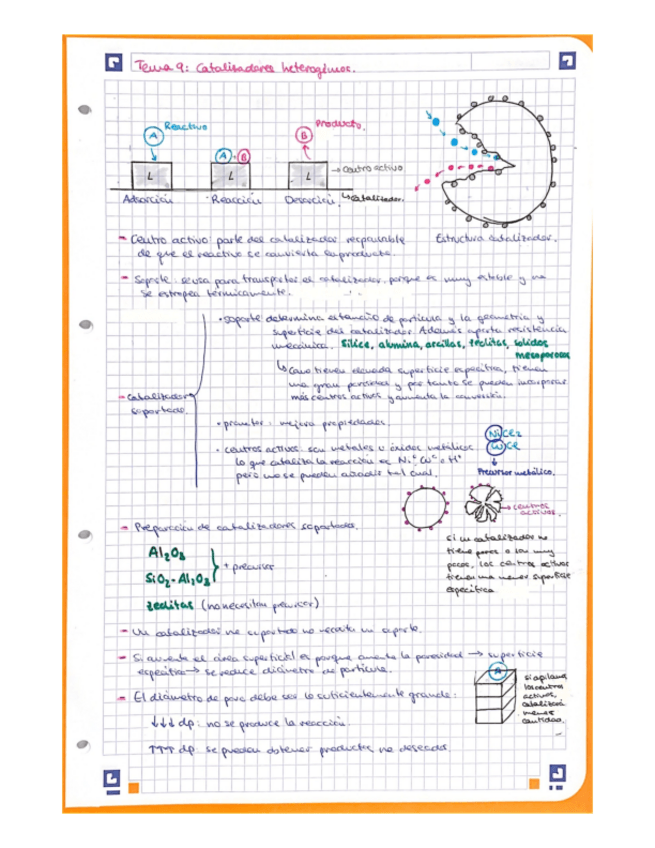 Tema 9: Catalizadores heterogéneos.
Reactivo
Producto.
A
A + B
B
L
L
L
→ Centro activo
Adsorción
Reacción
Desorción
↳ catalizador.
Estructura catalizador.
- Centro activo: parte del catalizador responsable
de que el reactivo se convierta en producto.
- Soporte: se usa para transportar el catalizador, porque es muy estable y no
se estropea térmicamente.
- Catalizador
soportado.
• soporte determina el tamaño de partícula y la geometría y
superficie del catalizador. Además aporta resistencia
mecánica. Sílice, alumina, arcillas, zeolitas, solidos
mesoporosos
↳ Como tienen elevada superficie específica, tienen
una gran porosidad y por tanto se pueden incorporar
más centros activos y aumenta la conversión.
• promotor: mejora propiedades
• centros activos: son metales u óxidos metálicos
lo que cataliza la reacción es Ni° Cu° o H⁺
pero no se pueden añadir tal cual.
Precursor metálico.
→ centros
activos.
- Preparación de catalizadores soportados.
Al₂O₃
SiO₂-Al₂O₃
+ precursor
zeolitas (no necesitan precursor)
si un catalizador no
tiene poros o son muy
pocos, los centros activos
tienen una menor superficie
específica
- Un catalizador no soportado no necesita un soporte.
- Si aumenta el área superficial es porque aumenta la porosidad → superficie
específica → se reduce diámetro de partícula.
- El diámetro de poro debe ser lo suficientemente grande:
↓↓↓ dp: no se produce la reacción.
↑↑↑ dp: se pueden obtener productos no deseados.
A
si apilamos
los centros
activos,
catalizará
menos
cantidad.